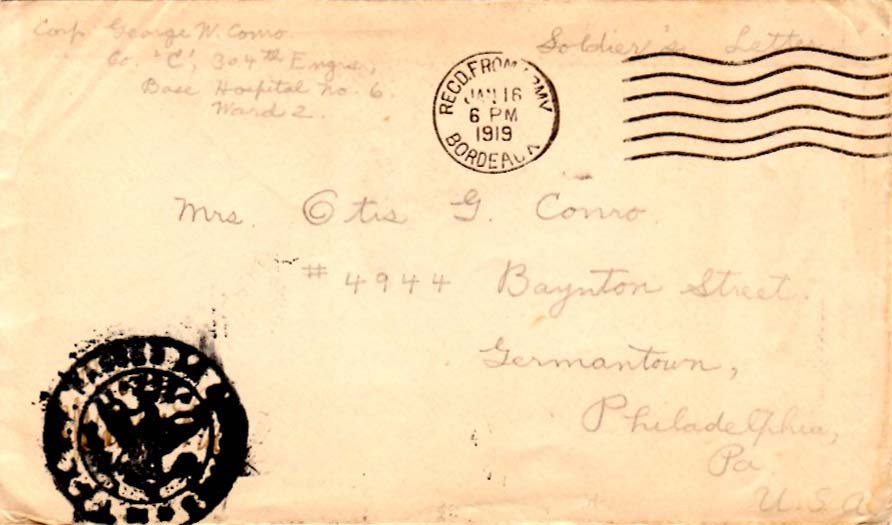 Corp George W. Conro.
Co. "C", 304th Engrs,
Base Hospital No. 6.
Ward 2.
Soldier's Letter
RECD. FROM
JAN 16
6 PM
1919
BORDEAUX
Mrs. Otis G. Conro.
#4944 Baynton Street.
Germantown,
Philadelphia,
Pa.
U.S.A.